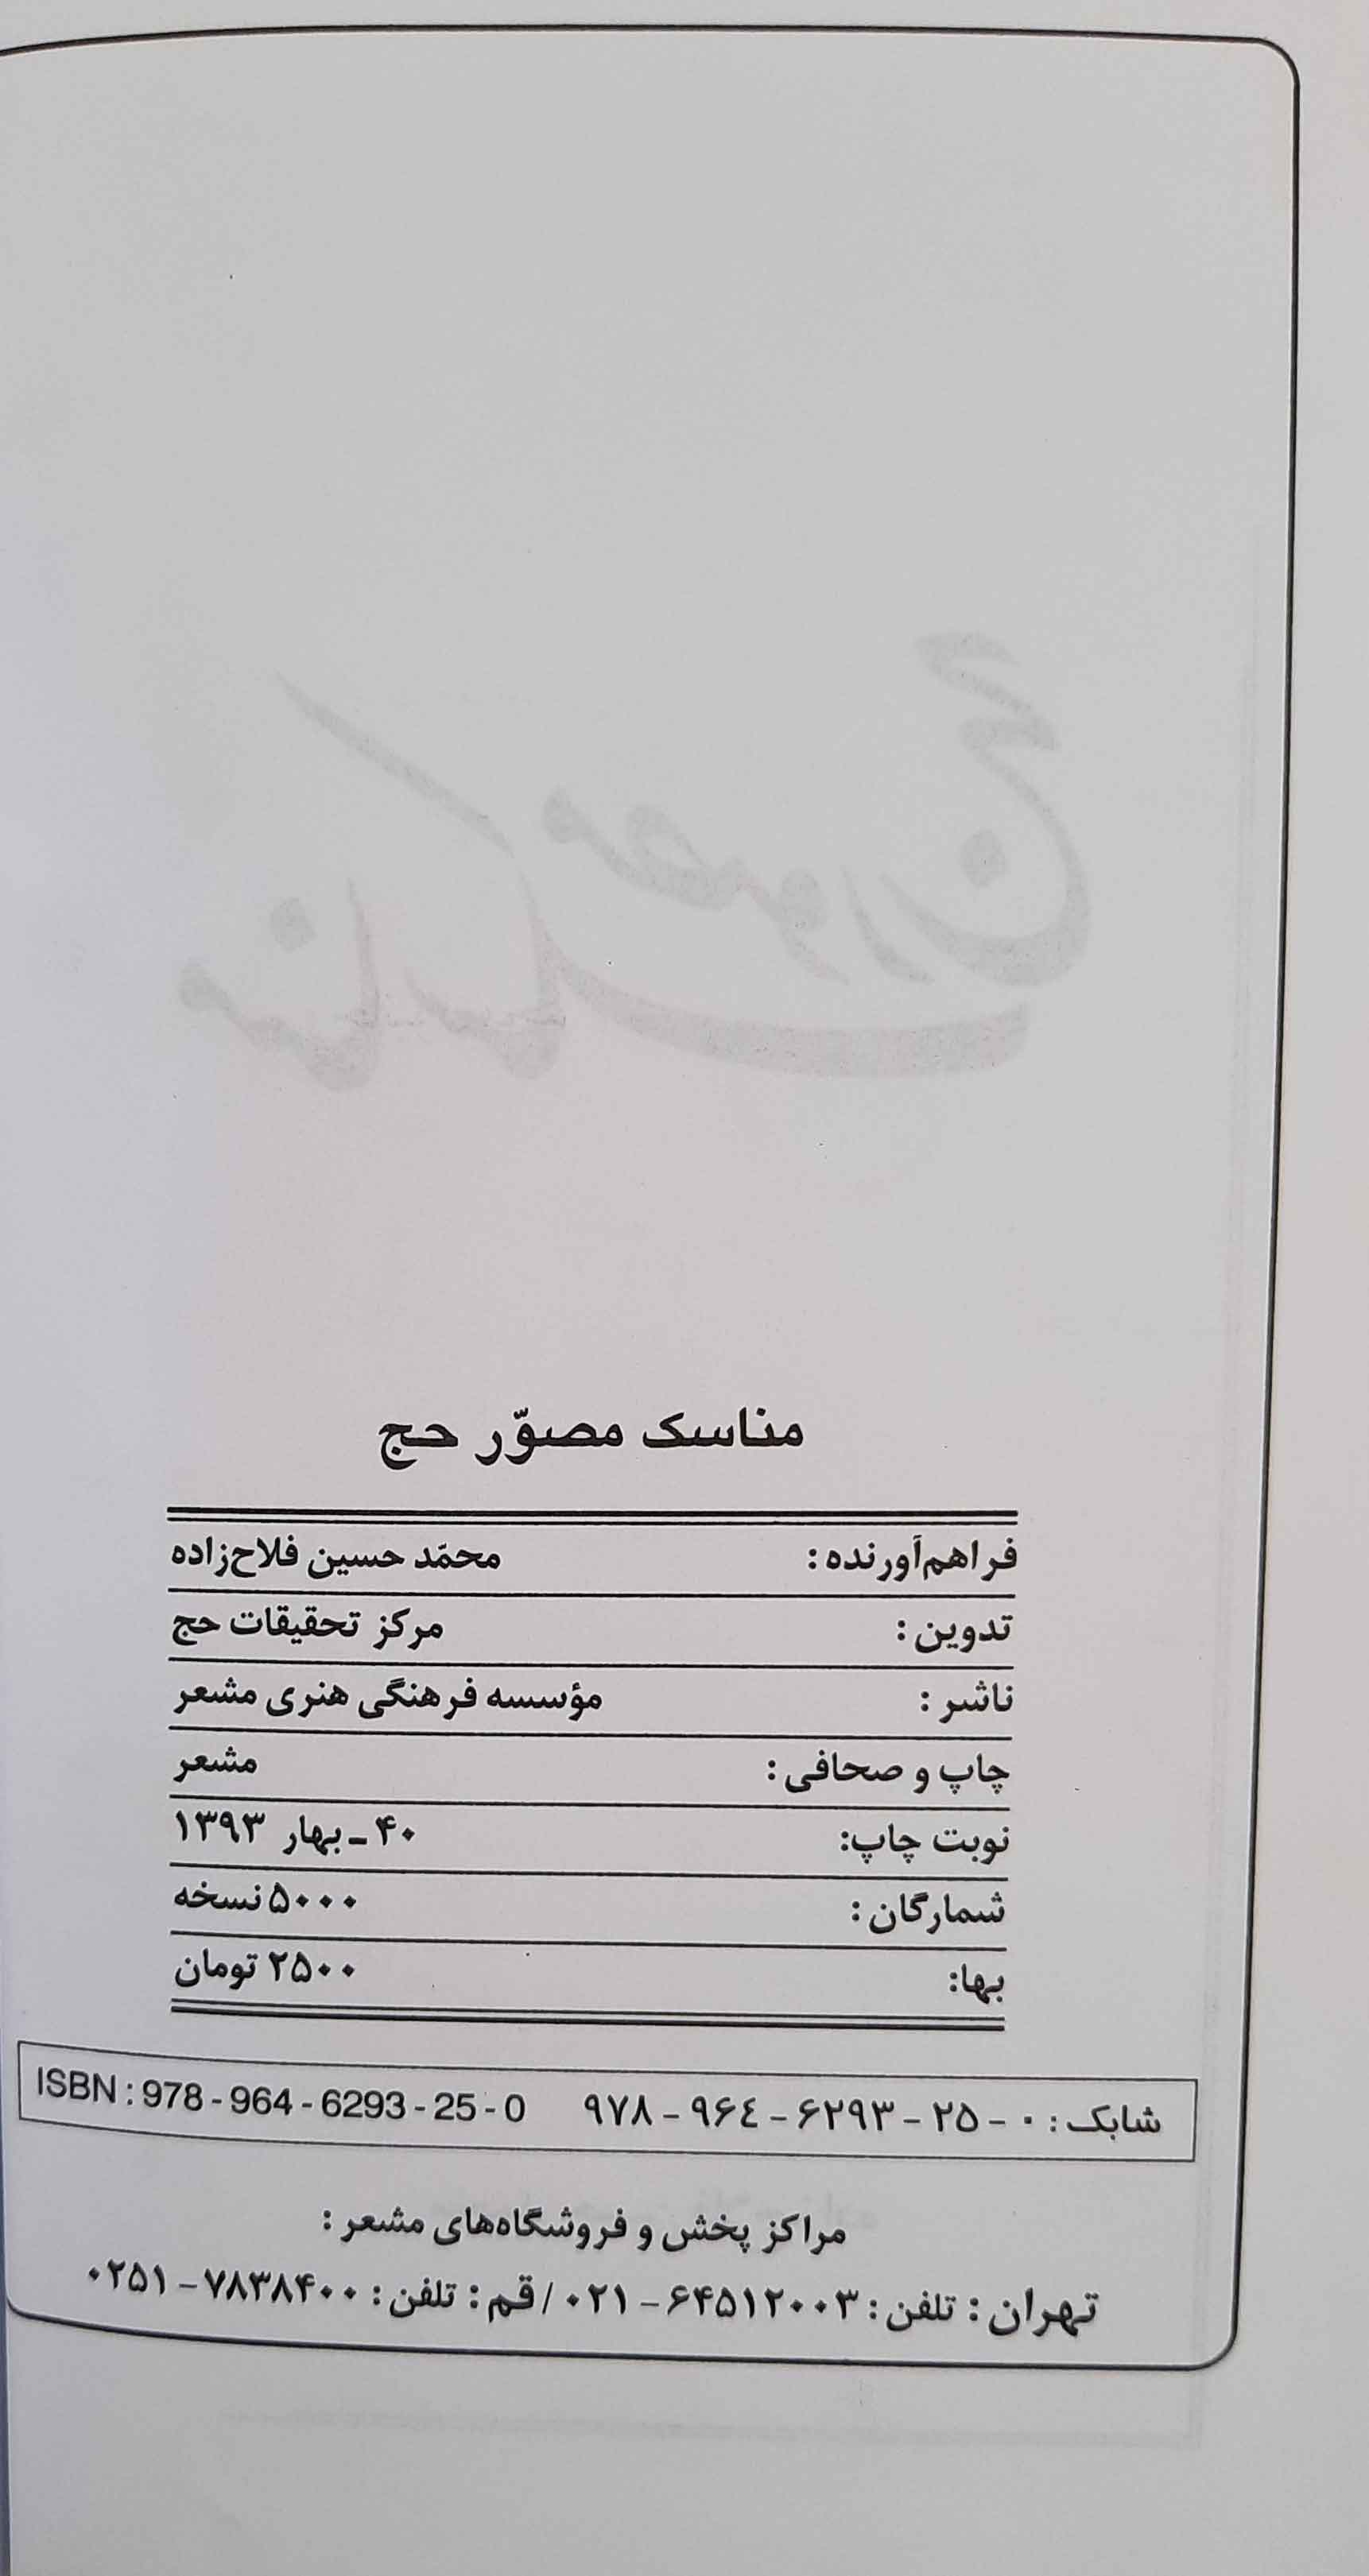 مناسک مصوّر حج
فراهم‌آورنده : محمّد حسین فلاح‌زاده
تدوین : مرکز تحقیقات حج
ناشر : مؤسسه فرهنگی هنری مشعر
چاپ و صحافی : مشعر
نوبت چاپ: ۴۰ ـ بهار ۱۳۹۳
شمارگان : ۵۰۰۰ نسخه
بها: ۲۵۰۰ تومان
شابک : ۰ - ۲۵ - ۶۲۹۳ - ۹۶٤ - ۹۷۸ ISBN : 978 - 964 - 6293 - 25 - 0
مراکز پخش و فروشگاه‌های مشعر :
تهران : تلفن : ۶۴۵۱۲۰۰۳ - ۰۲۱ / قم : تلفن : ۷۸۳۸۴۰۰ - ۰۲۵۱